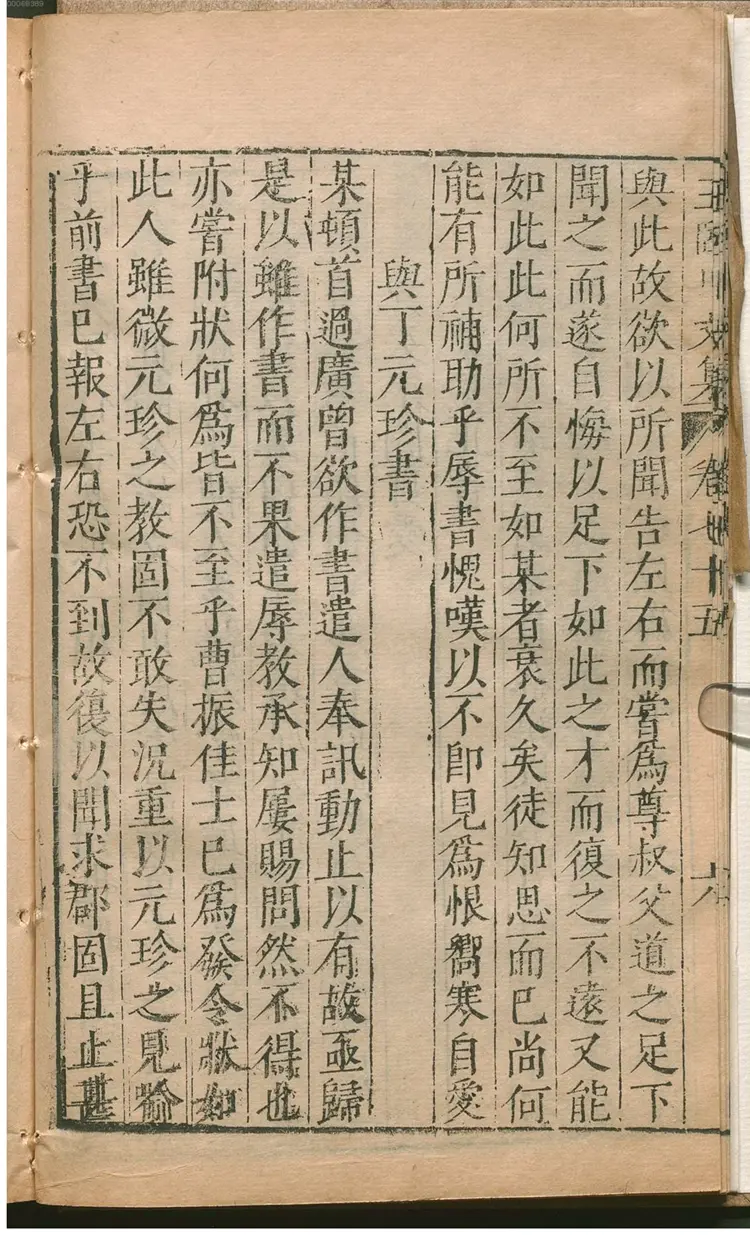 00068389
王臨川文集 卷七十五 六
與此故欲以所聞告左右而嘗爲尊叔父道之足下
聞之而遂自悔以足下如此之才而復之不遠又能
如此此何所不至如某者衰久矣徒知思而已尚何
能有所補助乎辱書愧嘆以不即見爲恨嚮寒自愛
與丁元珍書
某頓首過廣曾欲作書遣人奉訊動止以有故亟歸
是以雖作書而不果遣辱教承知屢賜問然不得也
亦嘗附狀何爲皆不至乎曹振佳士已爲發令狀如
此人雖微元珍之教固不敢失況重以元珍之見喻
乎前書已報左右恐不到故復以聞求郡固且止甚